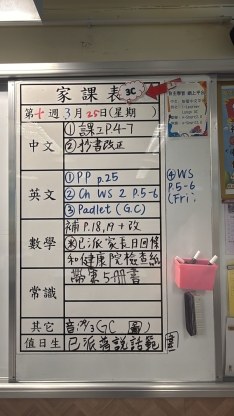 家課表 3C
第十週 3月25日(星期 )
中文
① 課工 P.4-7
② 抄書改正
英文
① PP p.25
② Ch WS 2 P.5-6
③ Padlet (G.C)
④ WS
P.5-6
(Fri:
數學
補 P.18,19 + 改
已派家長日回條
和健康院檢查紙
常識
帶業5冊書
其它
音:19/3 GC 圖
值日生
已派落説話範